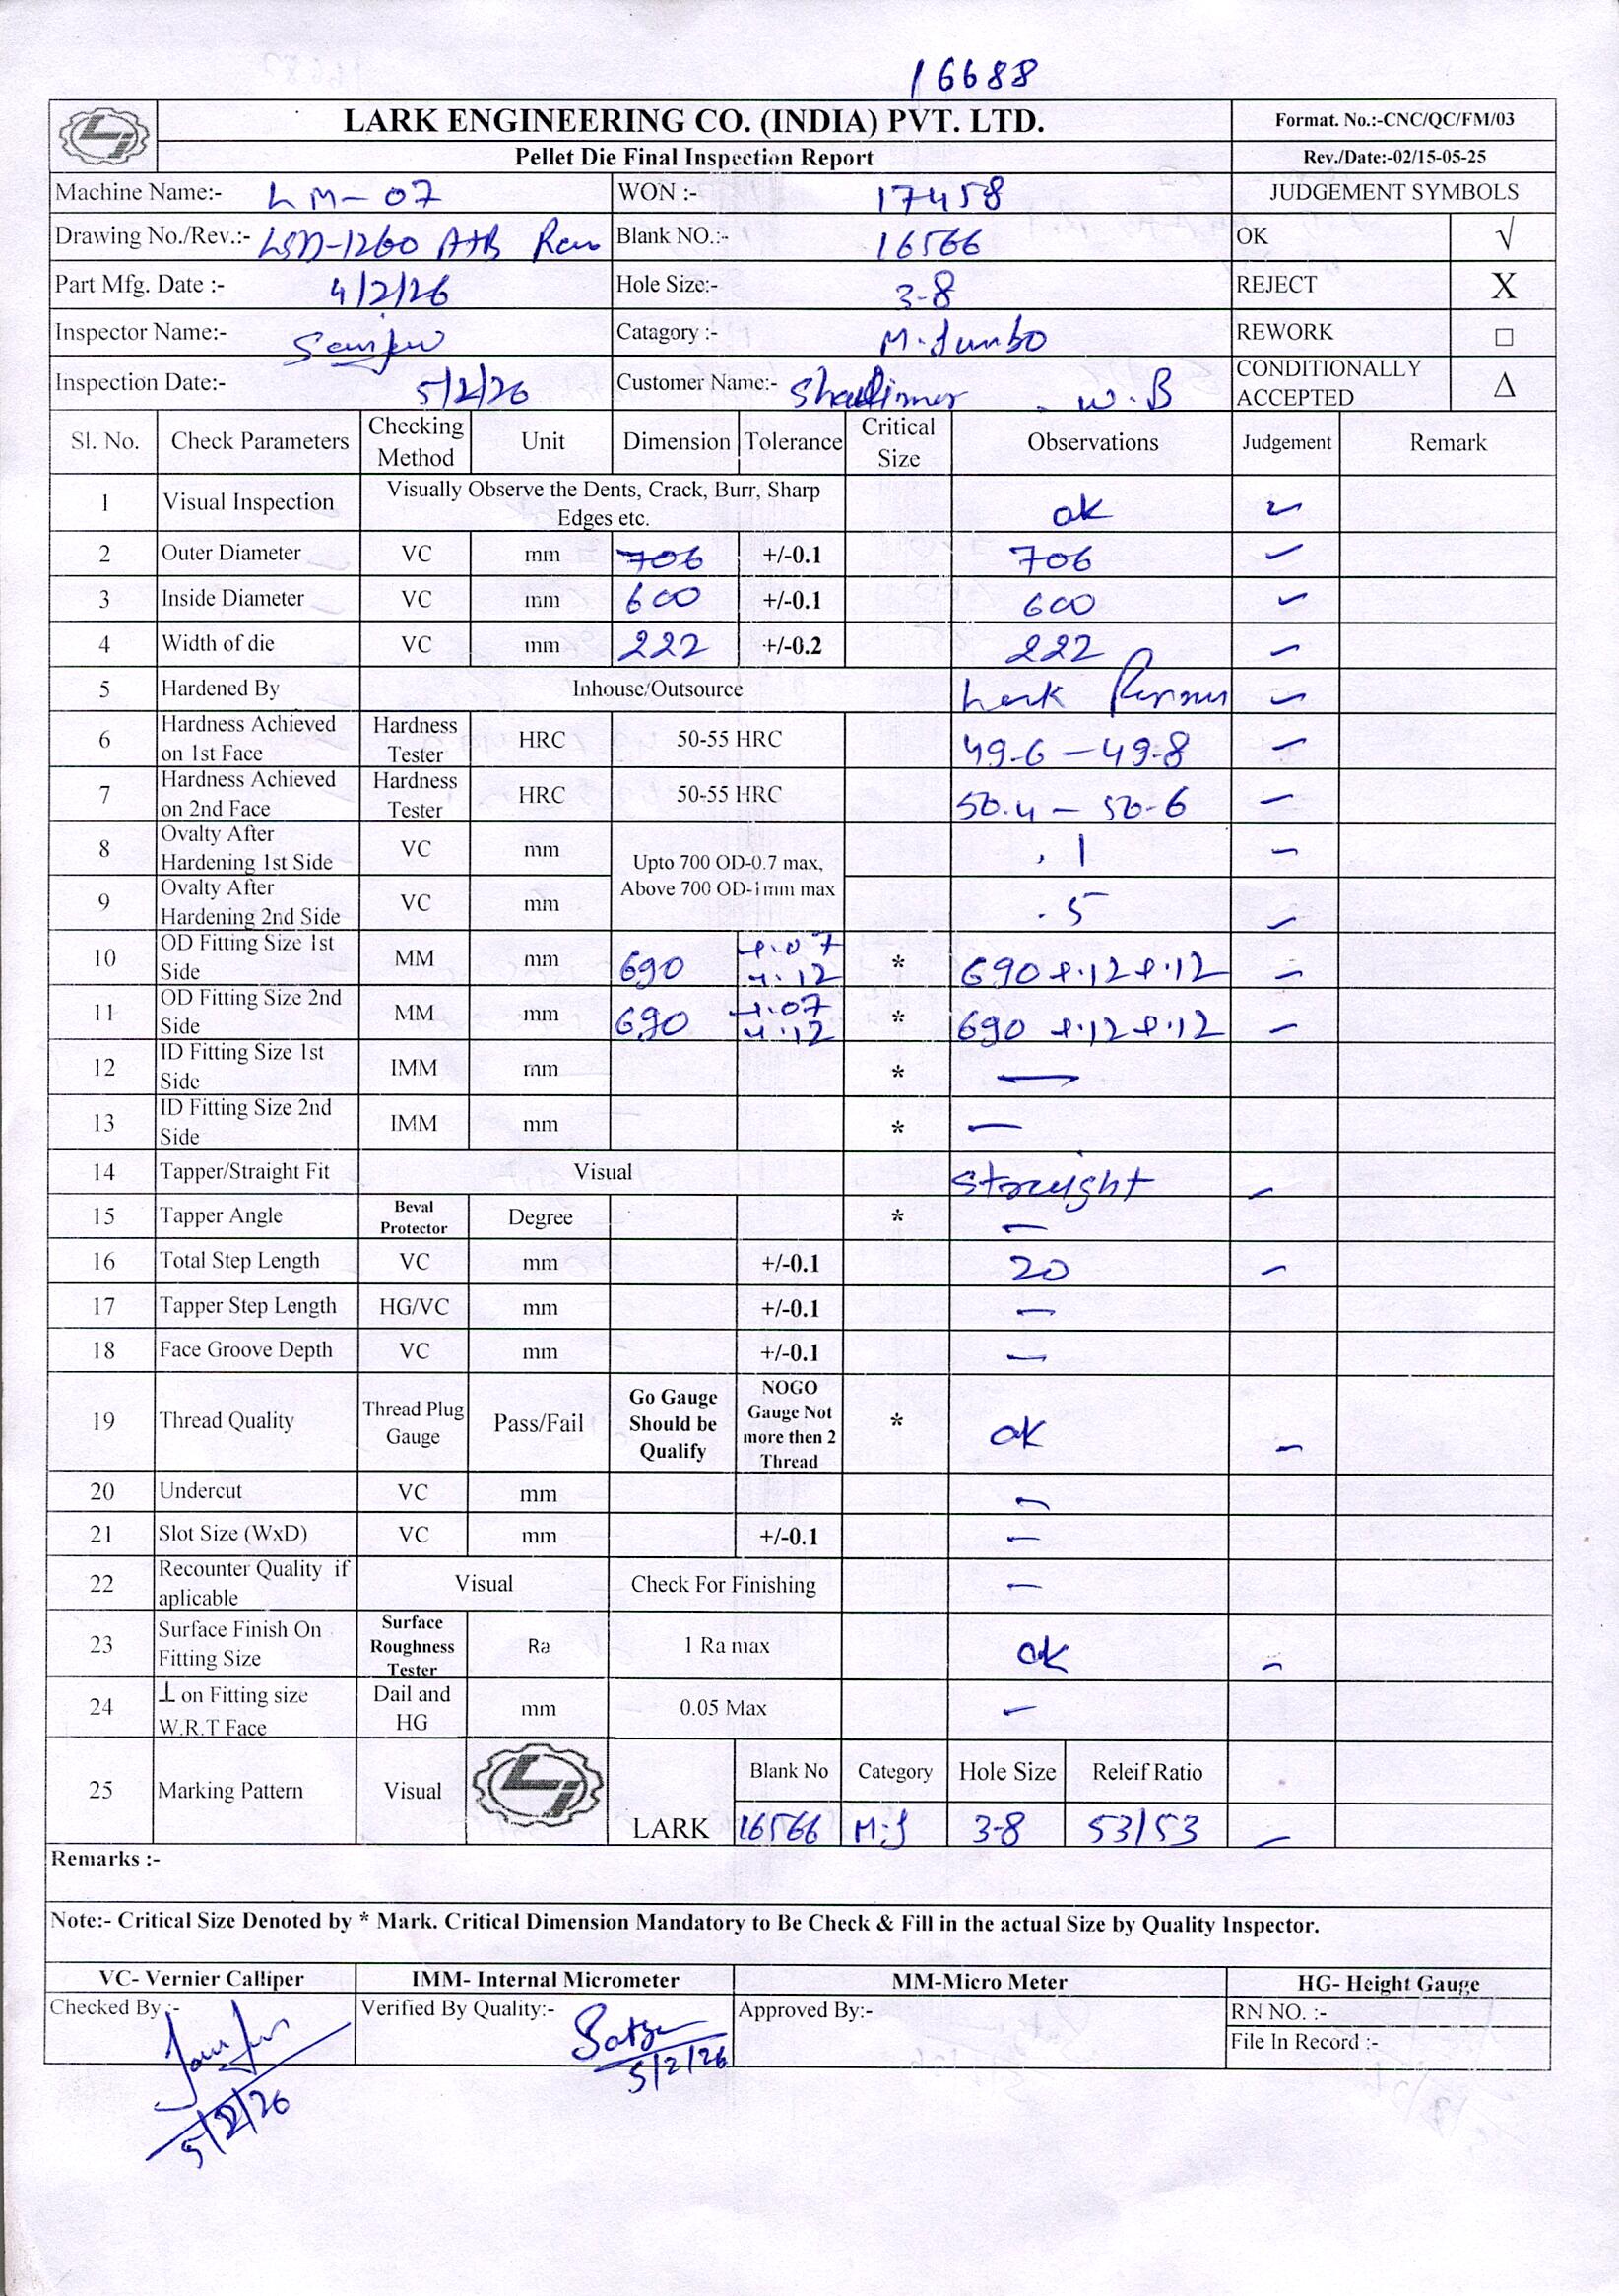 16688
LARK ENGINEERING CO. (INDIA) PVT. LTD. Format. No.:-CNC/QC/FM/03
Pellet Die Final Inspection Report Rev./Date:-02/15-05-25
Machine Name:- LM-07 WON :- 17458 JUDGEMENT SYMBOLS
Drawing No./Rev.:- LSD-1260 A+B Rev Blank NO.:- 16566 OK √
Part Mfg. Date :- 4/2/26 Hole Size:- 3-8 REJECT X
Inspector Name:- Catagory :- M.Jumbo REWORK □
Inspection Date:- 5/2/26 Customer Name:- W.B CONDITIONALLY ACCEPTED Δ
Sl. No. Check Parameters Checking Method Unit Dimension Tolerance Critical Size Observations Judgement Remark
1 Visual Inspection Visually Observe the Dents, Crack, Burr, Sharp Edges etc. ok
2 Outer Diameter VC mm 706 +/-0.1 706
3 Inside Diameter VC mm 600 +/-0.1 600
4 Width of die VC mm 222 +/-0.2 222
5 Hardened By Inhouse/Outsource Lark
6 Hardness Achieved on 1st Face Hardness Tester HRC 50-55 HRC 49-6 – 49-8
7 Hardness Achieved on 2nd Face Hardness Tester HRC 50-55 HRC 50.4 – 50-6
8 Ovalty After Hardening 1st Side VC mm Upto 700 OD-0.7 max, Above 700 OD-1mm max .1
9 Ovalty After Hardening 2nd Side VC mm .5
10 OD Fitting Size 1st Side MM mm 690 +.07 +.12 * 690 +.12 +.12
11 OD Fitting Size 2nd Side MM mm 690 +.07 +.12 * 690 +.12 +.12
12 ID Fitting Size 1st Side IMM mm * —
13 ID Fitting Size 2nd Side IMM mm * —
14 Tapper/Straight Fit Visual Straight
15 Tapper Angle Beval Protector Degree * —
16 Total Step Length VC mm +/-0.1 20
17 Tapper Step Length HG/VC mm +/-0.1 —
18 Face Groove Depth VC mm +/-0.1 —
19 Thread Quality Thread Plug Gauge Pass/Fail Go Gauge Should be Qualify NOGO Gauge Not more then 2 Thread * ok
20 Undercut VC mm —
21 Slot Size (WxD) VC mm +/-0.1 —
22 Recounter Quality if aplicable Visual Check For Finishing —
23 Surface Finish On Fitting Size Surface Roughness Tester Ra 1 Ra max ok
24 ⊥ on Fitting size W.R.T Face Dail and HG mm 0.05 Max —
25 Marking Pattern Visual LARK Blank No Category Hole Size Releif Ratio
16566 M.J 3-8 53/53
Remarks :-
Note:- Critical Size Denoted by * Mark. Critical Dimension Mandatory to Be Check & Fill in the actual Size by Quality Inspector.
VC- Vernier Calliper IMM- Internal Micrometer MM-Micro Meter HG- Height Gauge
Checked By :- Verified By Quality:- Approved By:- RN NO. :-
File In Record :-
5/2/26
5/2/26